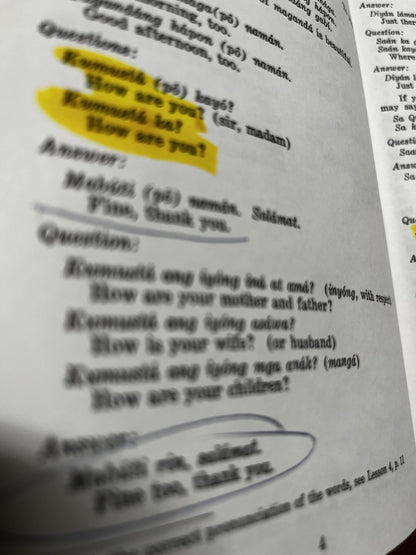 magandá is beautiful
(pô) namán.
morning, too.
hápon (pô) namán.
Good afternoon, too.
Questions:
Kumustá (pô) kayó?
How are you? (sir, madam)
Kumustá ka?
How are you?
Answer:
Mabúti (pô) namán. Salámat.
Fine, thank you.
Question:
Kumustá ang iyóng iná at amá? (inyóng, with respect)
How are your mother and father?
Kumustá ang iyóng asáwa?
How is your wife? (or husband)
Kumustá ang iyóng mga anák? (mangá)
How are your children?
Answer:
Mabúti rin, salámat.
Fine too, thank you.
correct pronunciation of the words, see Lesson 4, p. 11
4
Answer:
Diyán
Just
Question:
Saán ka
Saán
Where
Answer:
Diyán
Just
If y
may say
Sa
Sa
Questi
Saa
Answ
Sa